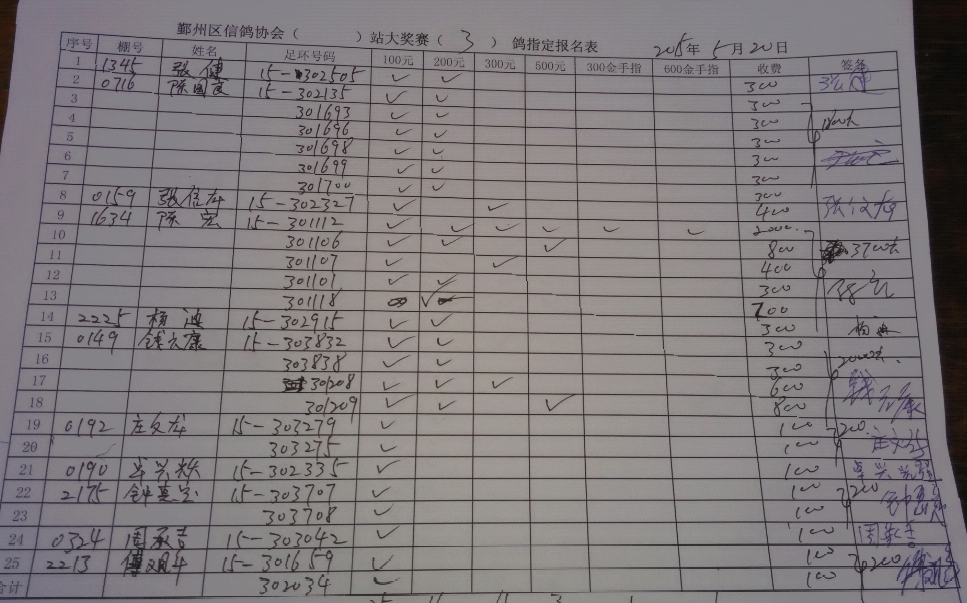 鄞州区信鸽协会（ ）站大奖赛（ 3 ）鸽指定报名表 2015年5月20日
序号 棚号 姓名 足环号码 100元 200元 300元 500元 300金手指 600金手指 收费 签名
1 1345 张健 15-302505 ✓ ✓ 300
2 0716 陈国良 15-302135 ✓ ✓ 300
3 301693 ✓ ✓ 300
4 301696 ✓ ✓ 300
5 301698 ✓ ✓ 300
6 301699 ✓ ✓ 300
7 301700 ✓ ✓ 300
8 0159 张信龙 15-302327 ✓ ✓ 400
9 1634 陈宏 15-301112 ✓ ✓ ✓ ✓ ✓ ✓ 2000
10 301106 ✓ ✓ ✓ 800
11 301107 ✓ ✓ 400 3700
12 301101 ✓ ✓ 300
13 301118 ✓
14 2225 杨迪 15-302915 ✓ ✓ 300
15 0149 15-303832 ✓ ✓ 300
16 303838 ✓ ✓ 300 2000
17 301208 ✓ ✓ ✓ 600
18 301209 ✓ ✓ ✓ 800
19 0192 庄文龙 15-303279 ✓ 100 200
20 303275 ✓ 100
21 0190 15-302335 ✓ 100
22 2175 15-303707 ✓ 100 200
23 303708 ✓ 100
24 0324 周承吉 15-303042 ✓ 100
25 2213 15-301659 ✓ 100 200
合计 302034 ✓ 100